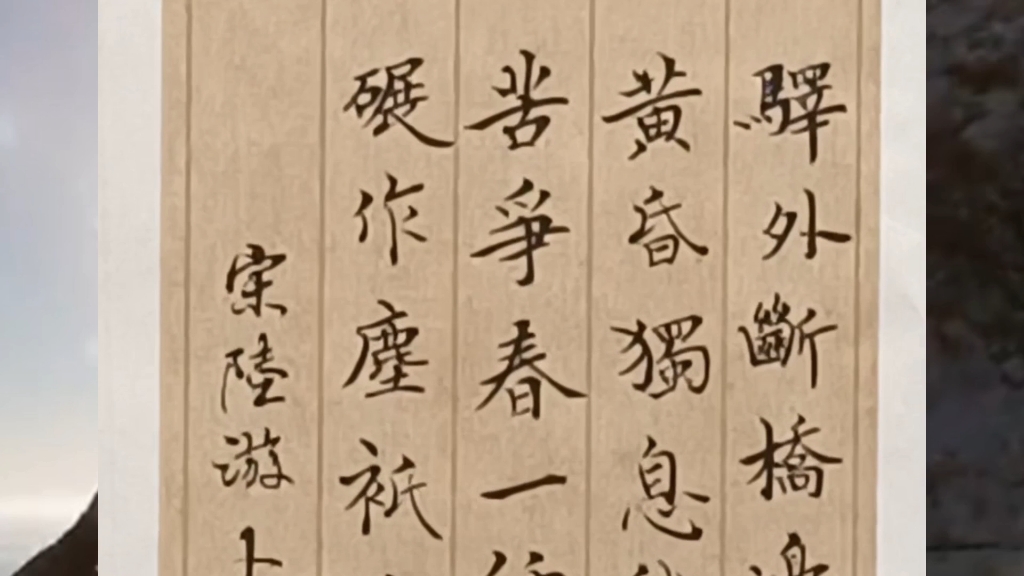 驛外斷橋
黃昏獨息
苦爭春一
碾作塵祇
宋陸游卜